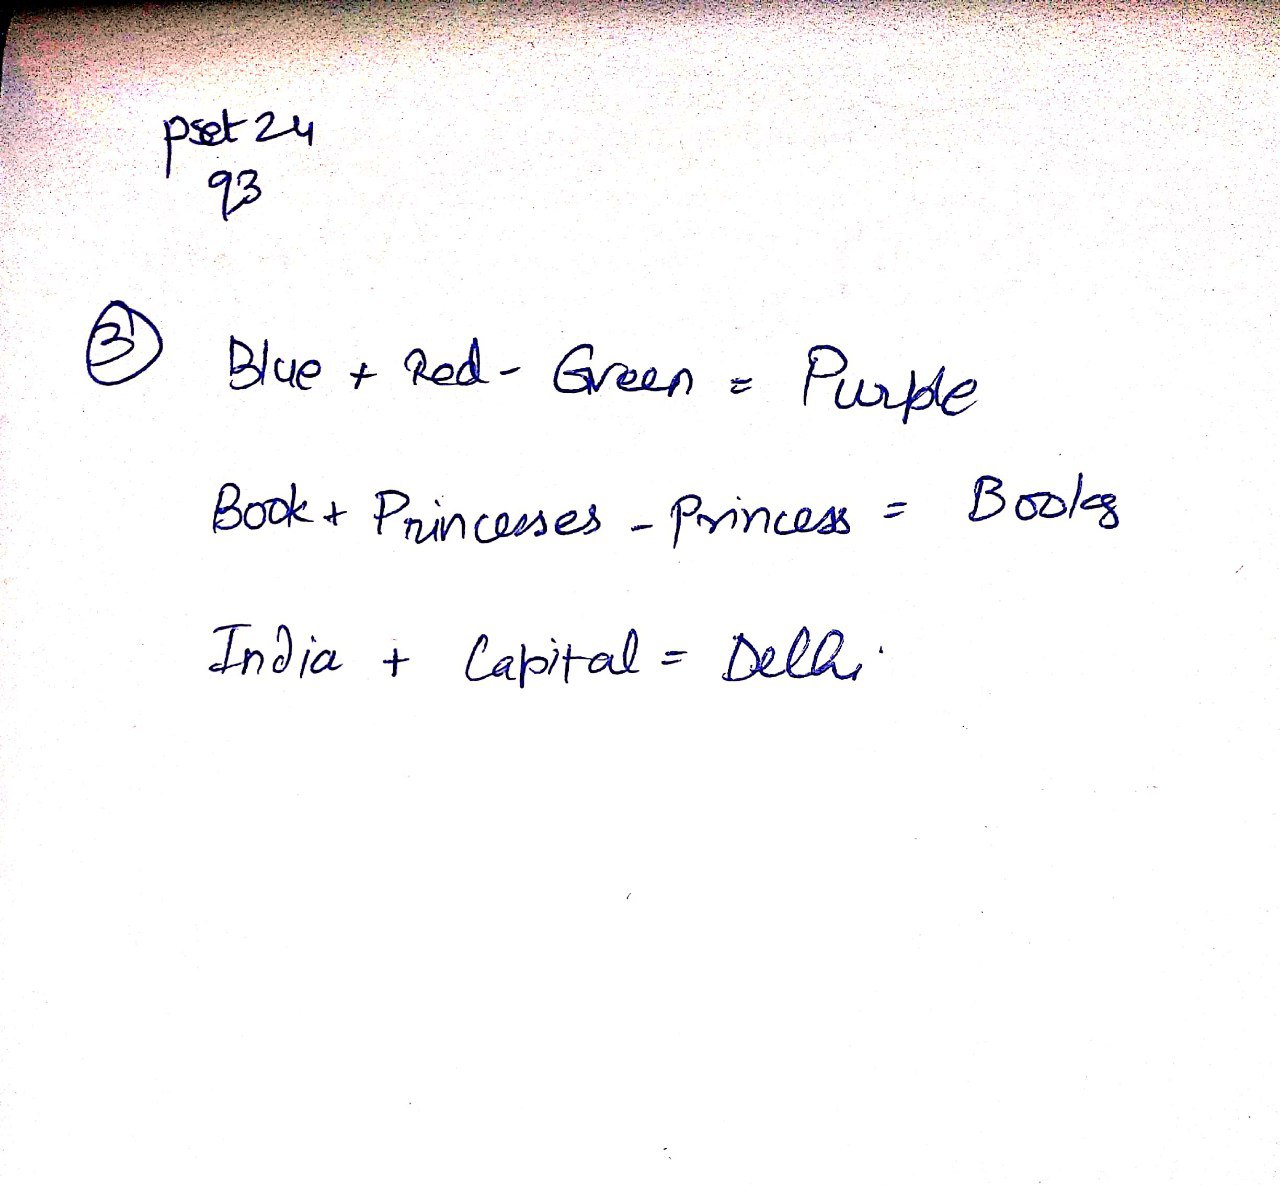 pset 24
q3
③ Blue + Red - Green = Purple
Book + Princesses - Princess = Books
India + Capital = Delhi